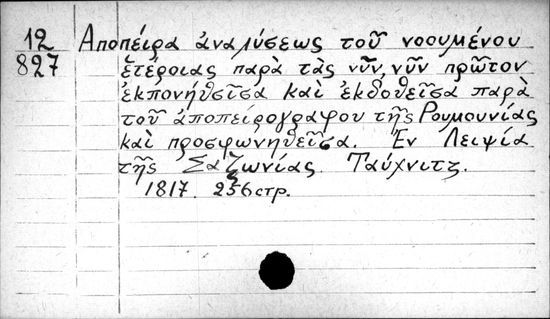 12
827
Αποπείρα ἀναλύσεως τοῦ νοουμένου
ἑτέροιας παρὰ τὰς νῦν, νῦν πρῶτον
ἐκπονηθεῖσα καὶ ἐκδοθεῖσα παρὰ
τοῦ ἀποπειρογραφου τῆς Ρουμουνίας
καὶ προσφωνηθεῖσα. Ἐν Λειψία
τῆς Σαξωνίας. Ταύχνιτζ.
1817. 256 стр.